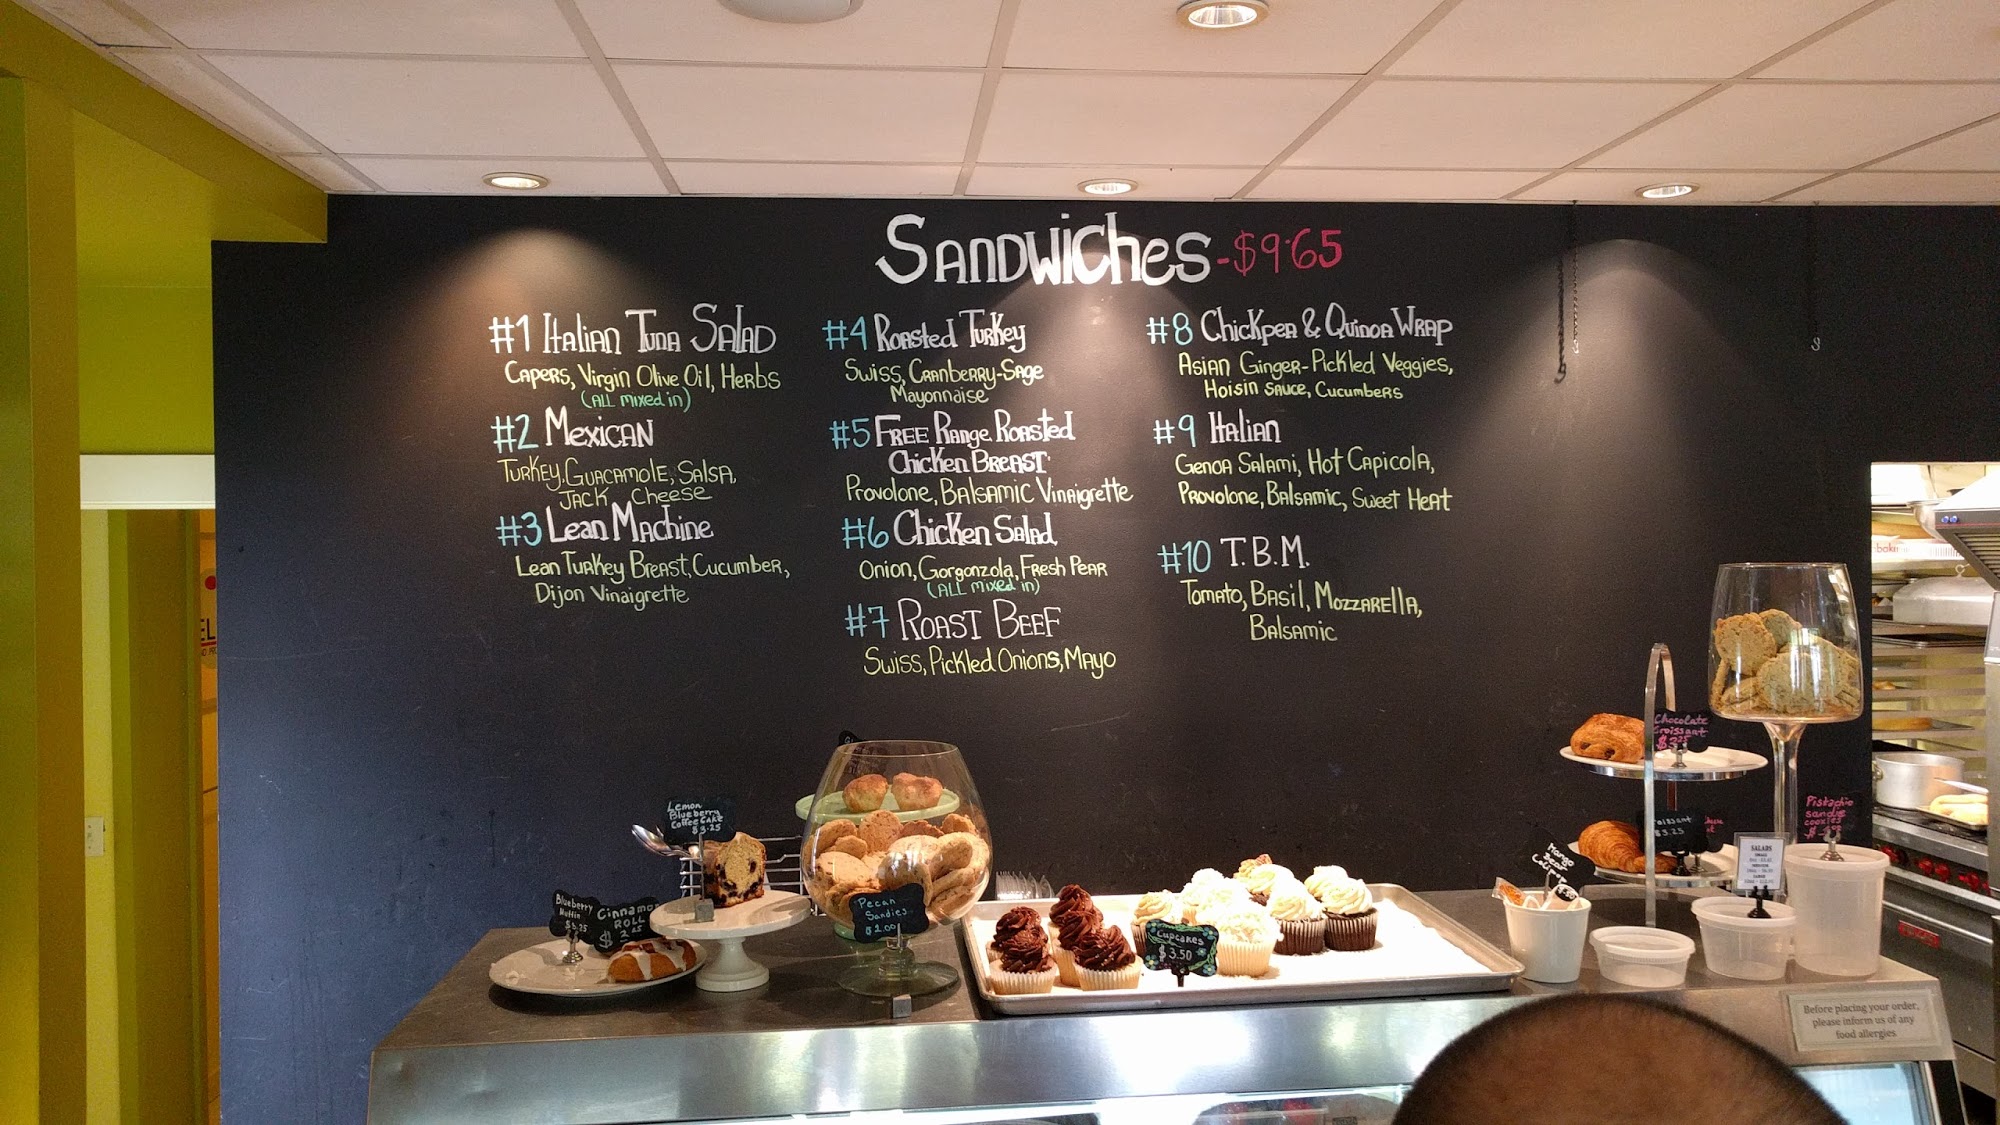 Sandwiches - $9.65
#1 Italian Tuna Salad
Capers, Virgin Olive Oil, Herbs
(All mixed in)
#2 Mexican
Turkey, Guacamole, Salsa,
Jack Cheese
#3 Lean Machine
Lean Turkey Breast, Cucumber,
Dijon Vinaigrette
#4 Roasted Turkey
Swiss, Cranberry-Sage
Mayonnaise
#5 Free Range Roasted
Chicken Breast
Provolone, Balsamic Vinaigrette
#6 Chicken Salad
Onion, Gorgonzola, Fresh Pear
(All mixed in)
#7 Roast Beef
Swiss, Pickled Onions, Mayo
#8 Chickpea & Quinoa Wrap
Asian Ginger-Pickled Veggies,
Hoisin Sauce, Cucumbers
#9 Italian
Genoa Salami, Hot Capicola,
Provolone, Balsamic, Sweet Heat
#10 T.B.M.
Tomato, Basil, Mozzarella,
Balsamic
Lemon
Blueberry
Coffee Cake
$3.25
Blueberry
Cinnamon
Roll
Pecan
Sandies
$2.00
Cupcakes
$3.50
Mango
Chocolate
Croissant
Croissant
$3.25
Pistachio
Sandie
Cookies
SALADS
Before placing your order,
please inform us of any
food allergies